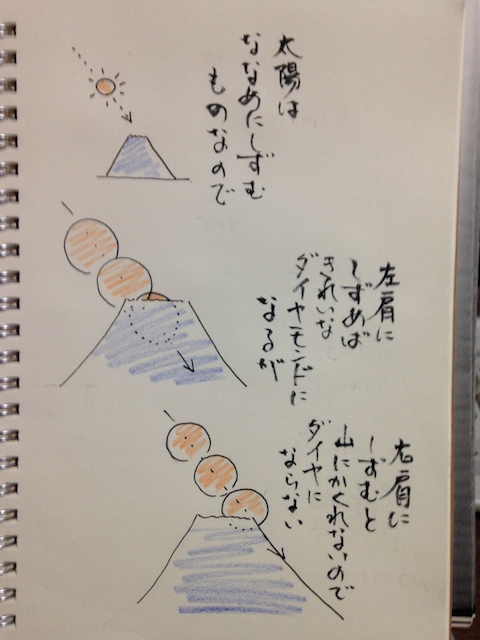 太陽は
ななめにしずむ
ものなので
左肩に
しずめば
きれいな
ダイヤモンドに
なるが
右肩に
しずむと
山にかくれないので
ダイヤに
ならない